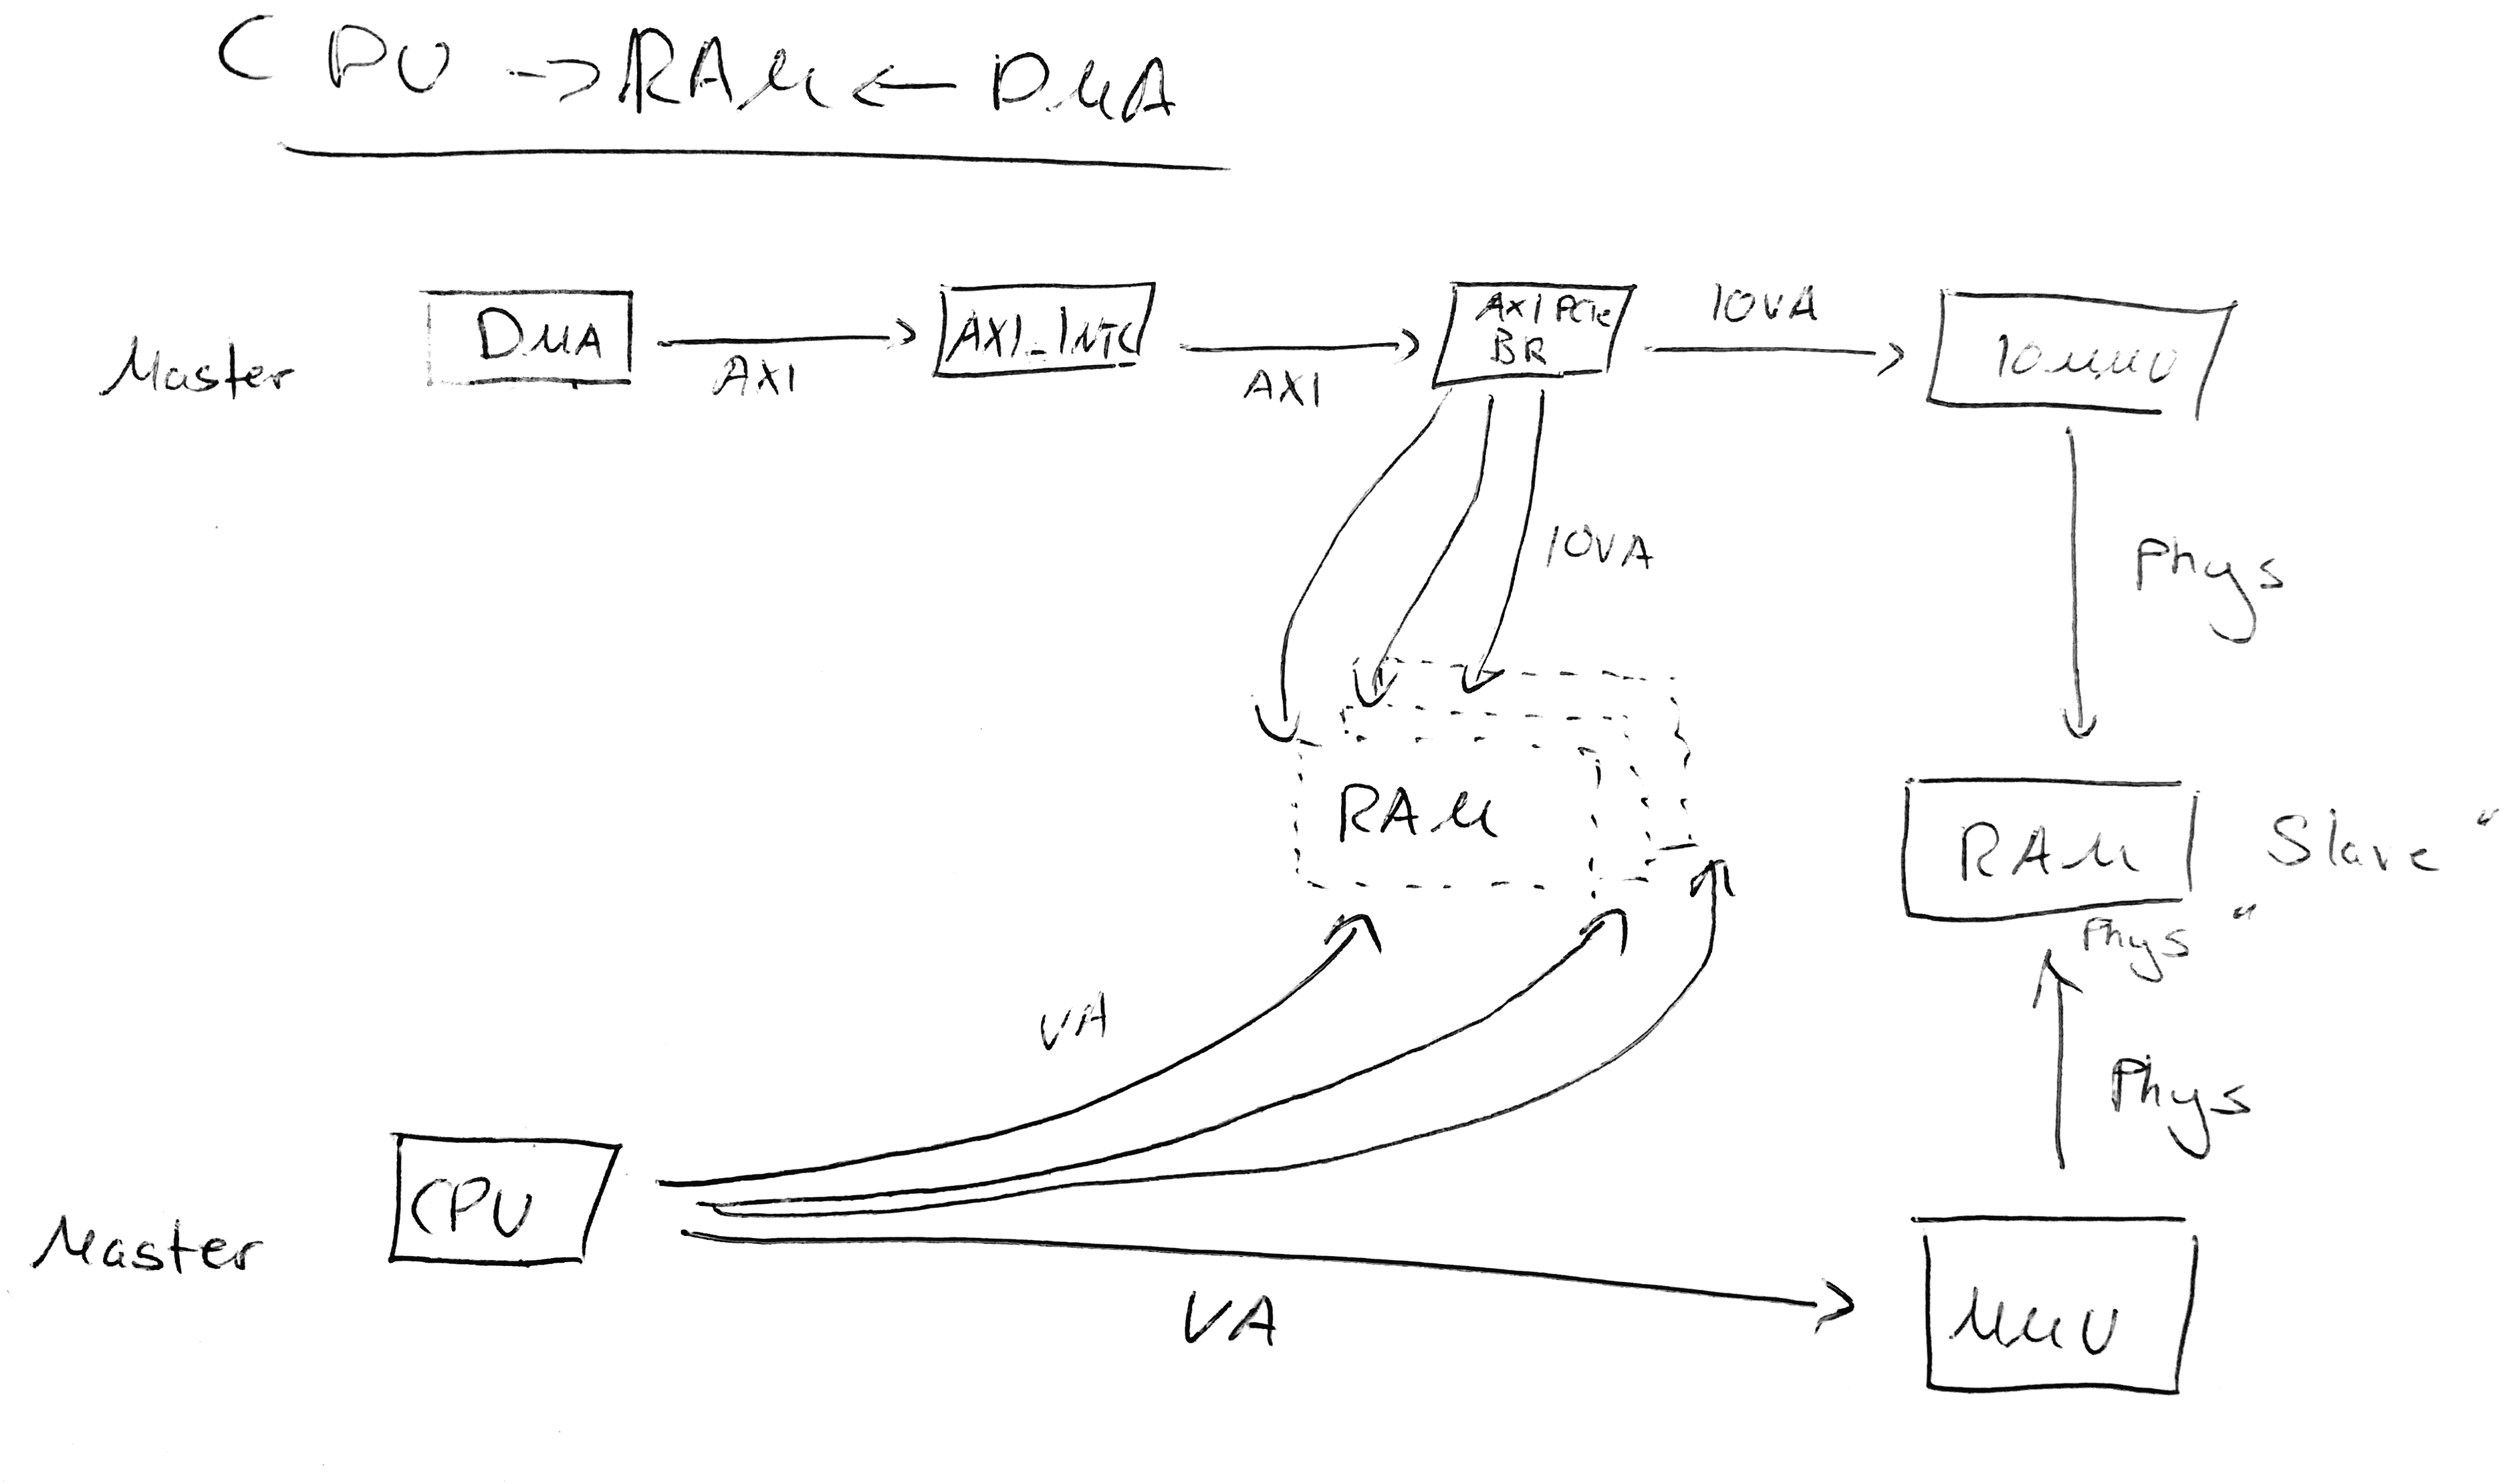 CPU -> RAM <- DMA
Master
DMA
AXI
AXI_INTC
AXI
AXI PCIe
BR
IOVA
IOMMU
IOVA
Phys
RAM
RAM
Slave "
Phys "
VA
Phys
Master
CPU
VA
MMU